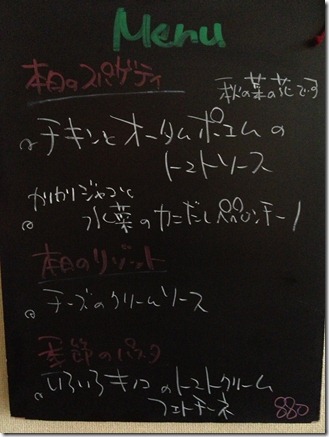 Menu
本日のスパゲティ
秋の菜の花です
チキンとオータムポエムの
トマトソース
かりかりジャコと
水菜のカニだしペペロンチーノ
本日のリゾット
チーズのクリームソース
季節のパスタ
いろいろキノコのトマトクリーム
フェトチーネ
880